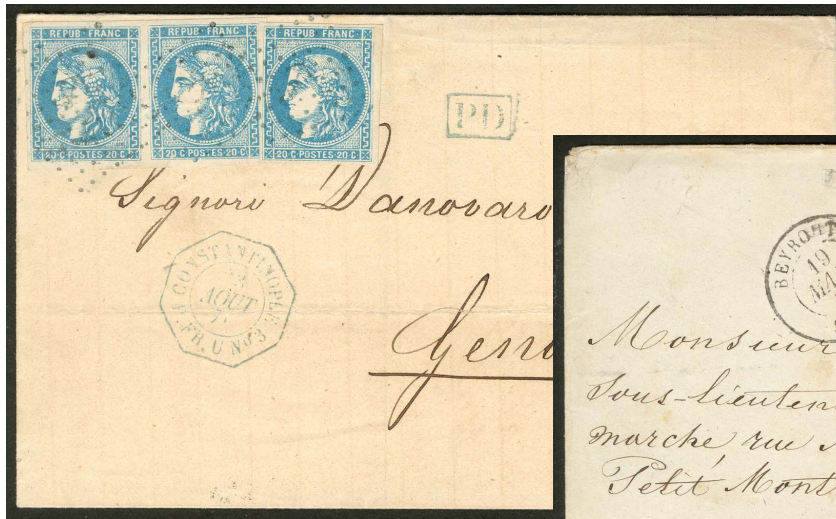 REPUB·FRANC REPUB·FRANC REPUB·FRANC
20 C·POSTES·20 C 20 C·POSTES·20 C 20 C·POSTES·20 C
PD
Signori Danovaro
CONSTANTINOPLE
AOUT
P. FR. U No 3
Geno
BEYROUT
19
MA
Monsieur
Sous-lieuten
marché, rue
Petit Mont